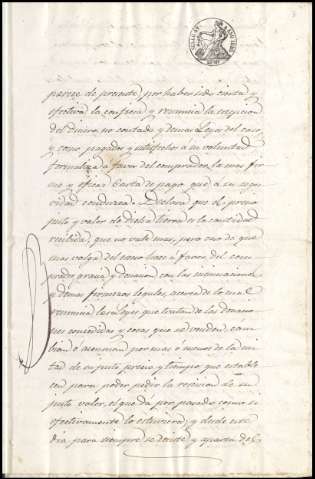 parece de presente, por haber sido cierta y
efectiva la confiesa y renuncia la excepcion
del dinero no contado y demas Leyes del caso
y como pagado y satisfecho a su voluntad
formaliza a favor del comprador, la mas fir
me y eficaz Carta de pago que a su segu
ridad conduzca. Declara que el precio
justo y valor de dicha tierra es la cantidad
recibida, que no vale mas, pero caso de que
mas valga del esceso hace a favor del com
prador gracia y donacion con las insinuaciones
y demas firmezas legales, acerca de lo cual
renuncia las Leyes que tratan de las donacio
nes y cosas que se venden, cam
bian o por mas o menos de la mi
tad de su justo precio y tiempo que estable
cen para poder pedir la rescision de su
justo valor, el que da por pasado como si
efectivamente lo estuviera; y desde este
dia para siempre se desiste y aparta de